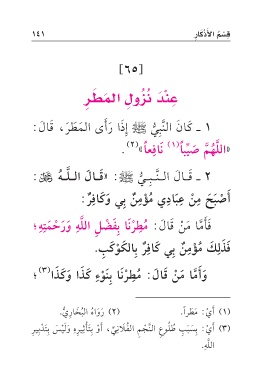 قِسْمُ الأَذْكَارِ ١٤١
[٦٥]
عِنْدَ نُزُولِ المَطَرِ
١ ـ كَانَ النَّبِيُّ ﷺ إِذَا رَأَى المَطَرَ، قَالَ:
«اللَّهُمَّ صَيِّباً(١) نَافِعاً»(٢).
٢ ـ قَالَ النَّبِيُّ ﷺ: «قَالَ اللَّهُ ﷻ:
أَصْبَحَ مِنْ عِبَادِي مُؤْمِنٌ بِي وَكَافِرٌ:
فَأَمَّا مَنْ قَالَ: مُطِرْنَا بِفَضْلِ اللَّهِ وَرَحْمَتِهِ؛
فَذَلِكَ مُؤْمِنٌ بِي كَافِرٌ بِالكَوْكَبِ.
وَأَمَّا مَنْ قَالَ: مُطِرْنَا بِنَوْءِ كَذَا وَكَذَا(٣)؛
(١) أَيْ: مَطَراً. (٢) رَوَاهُ البُخَارِيُّ.
(٣) أَيْ: بِسَبَبِ طُلُوعِ النَّجْمِ الفُلَانِيِّ، أَوْ بِتَأْثِيرِهِ وَلَيْسَ بِتَدْبِيرِ
اللَّهِ.